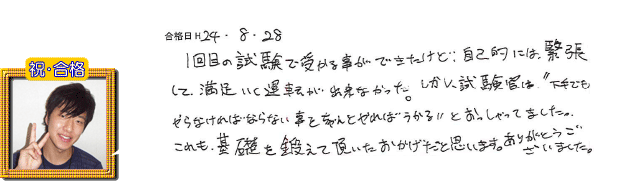 合格日 H24・8・28
祝・合格
1回目の試験で受かる事ができたけど、自己的には、緊張
して、満足いく運転が出来なかった。しかし、試験官は、"下手でも
やらなければならない事をちゃんとやればうかる"とおっしゃってました。
これも、基礎を鍛えて頂いたおかげだと思います。ありがとうご
ざいました。